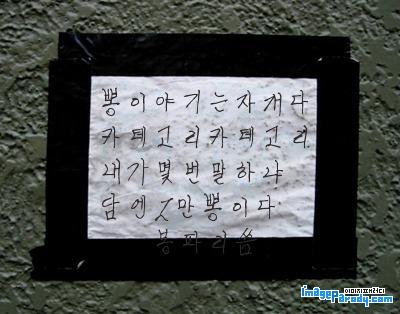 뽕이야기는자게다
카테고리카테고리.
내가몇번말하냐
담엔 Z만뽕이다.
봉파리씀
이미지패러디
ImageParody.com